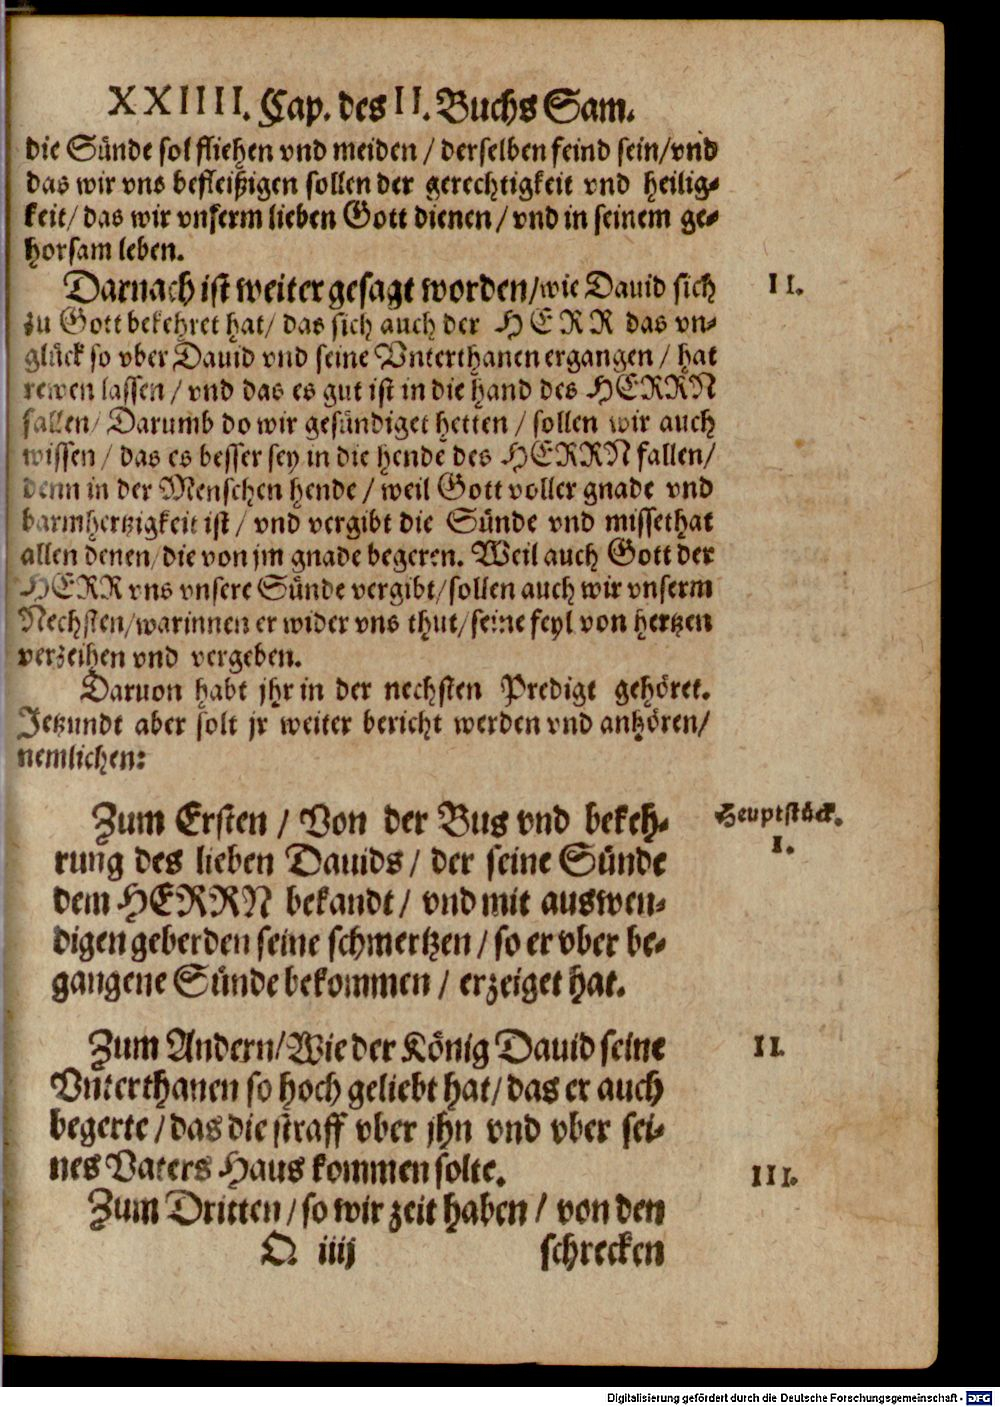 XXIIII. Cap. des II. Buchs Sam.
die Sünde sol fliehen vnd meiden / derselben feind sein/vnd
das wir vns befleißigen sollen der gerechtigkeit vnd heilig-
keit/ das wir vnserm lieben Gott dienen / vnd in seinem ge-
horsam leben.
Darnach ist weiter gesagt worden/wie Dauid sich
II.
zu Gott bekehret hat/ das sich auch der HERR das vn-
glück so vber Dauid vnd seine Vnterthanen ergangen / hat
rewen lassen / vnd das es gut ist in die hand des HERRN
fallen/ Darumb do wir gesündiget hetten / sollen wir auch
wissen / das es besser sey in die hende des HERRN fallen/
denn in der Menschen hende / weil Gott voller gnade vnd
barmhertzigkeit ist / vnd vergibt die Sünde vnd missethat
allen denen/die von jm gnade begeren. Weil auch Gott der
HERR vns vnsere Sünde vergibt/sollen auch wir vnserm
Nechsten/warinnen er wider vns thut/seine feyl von hertzen
verzeihen vnd vergeben.
Daruon habt jhr in der nechsten Predigt gehöret.
Jetzundt aber solt jr weiter bericht werden vnd anhören/
nemlichen:
Zum Ersten / Von der Bus vnd bekeh-
Heuptstück.
I.
rung des lieben Dauids / der seine Sünde
dem HERRN bekandt / vnd mit auswen-
digen geberden seine schmertzen / so er vber be-
gangene Sünde bekommen / erzeiget hat.
Zum Andern/Wie der König Dauid seine
II.
Vnterthanen so hoch geliebt hat/das er auch
begerte / das die straff vber jhn vnd vber sei-
nes Vaters Haus kommen solte.
III.
Zum Dritten / so wir zeit haben / von den
Q iiij
schrecken
Digitalisierung gefördert durch die Deutsche Forschungsgemeinschaft - DFG